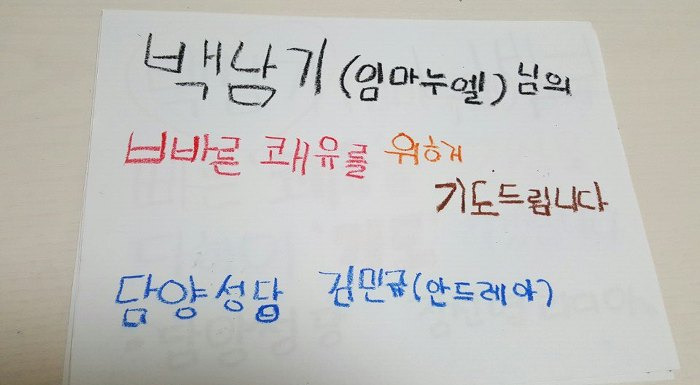 백남기(임마누엘)님의
쁘바른 쾌유를 위하게
기도드립니다
담양성당 김민규(안드레아)